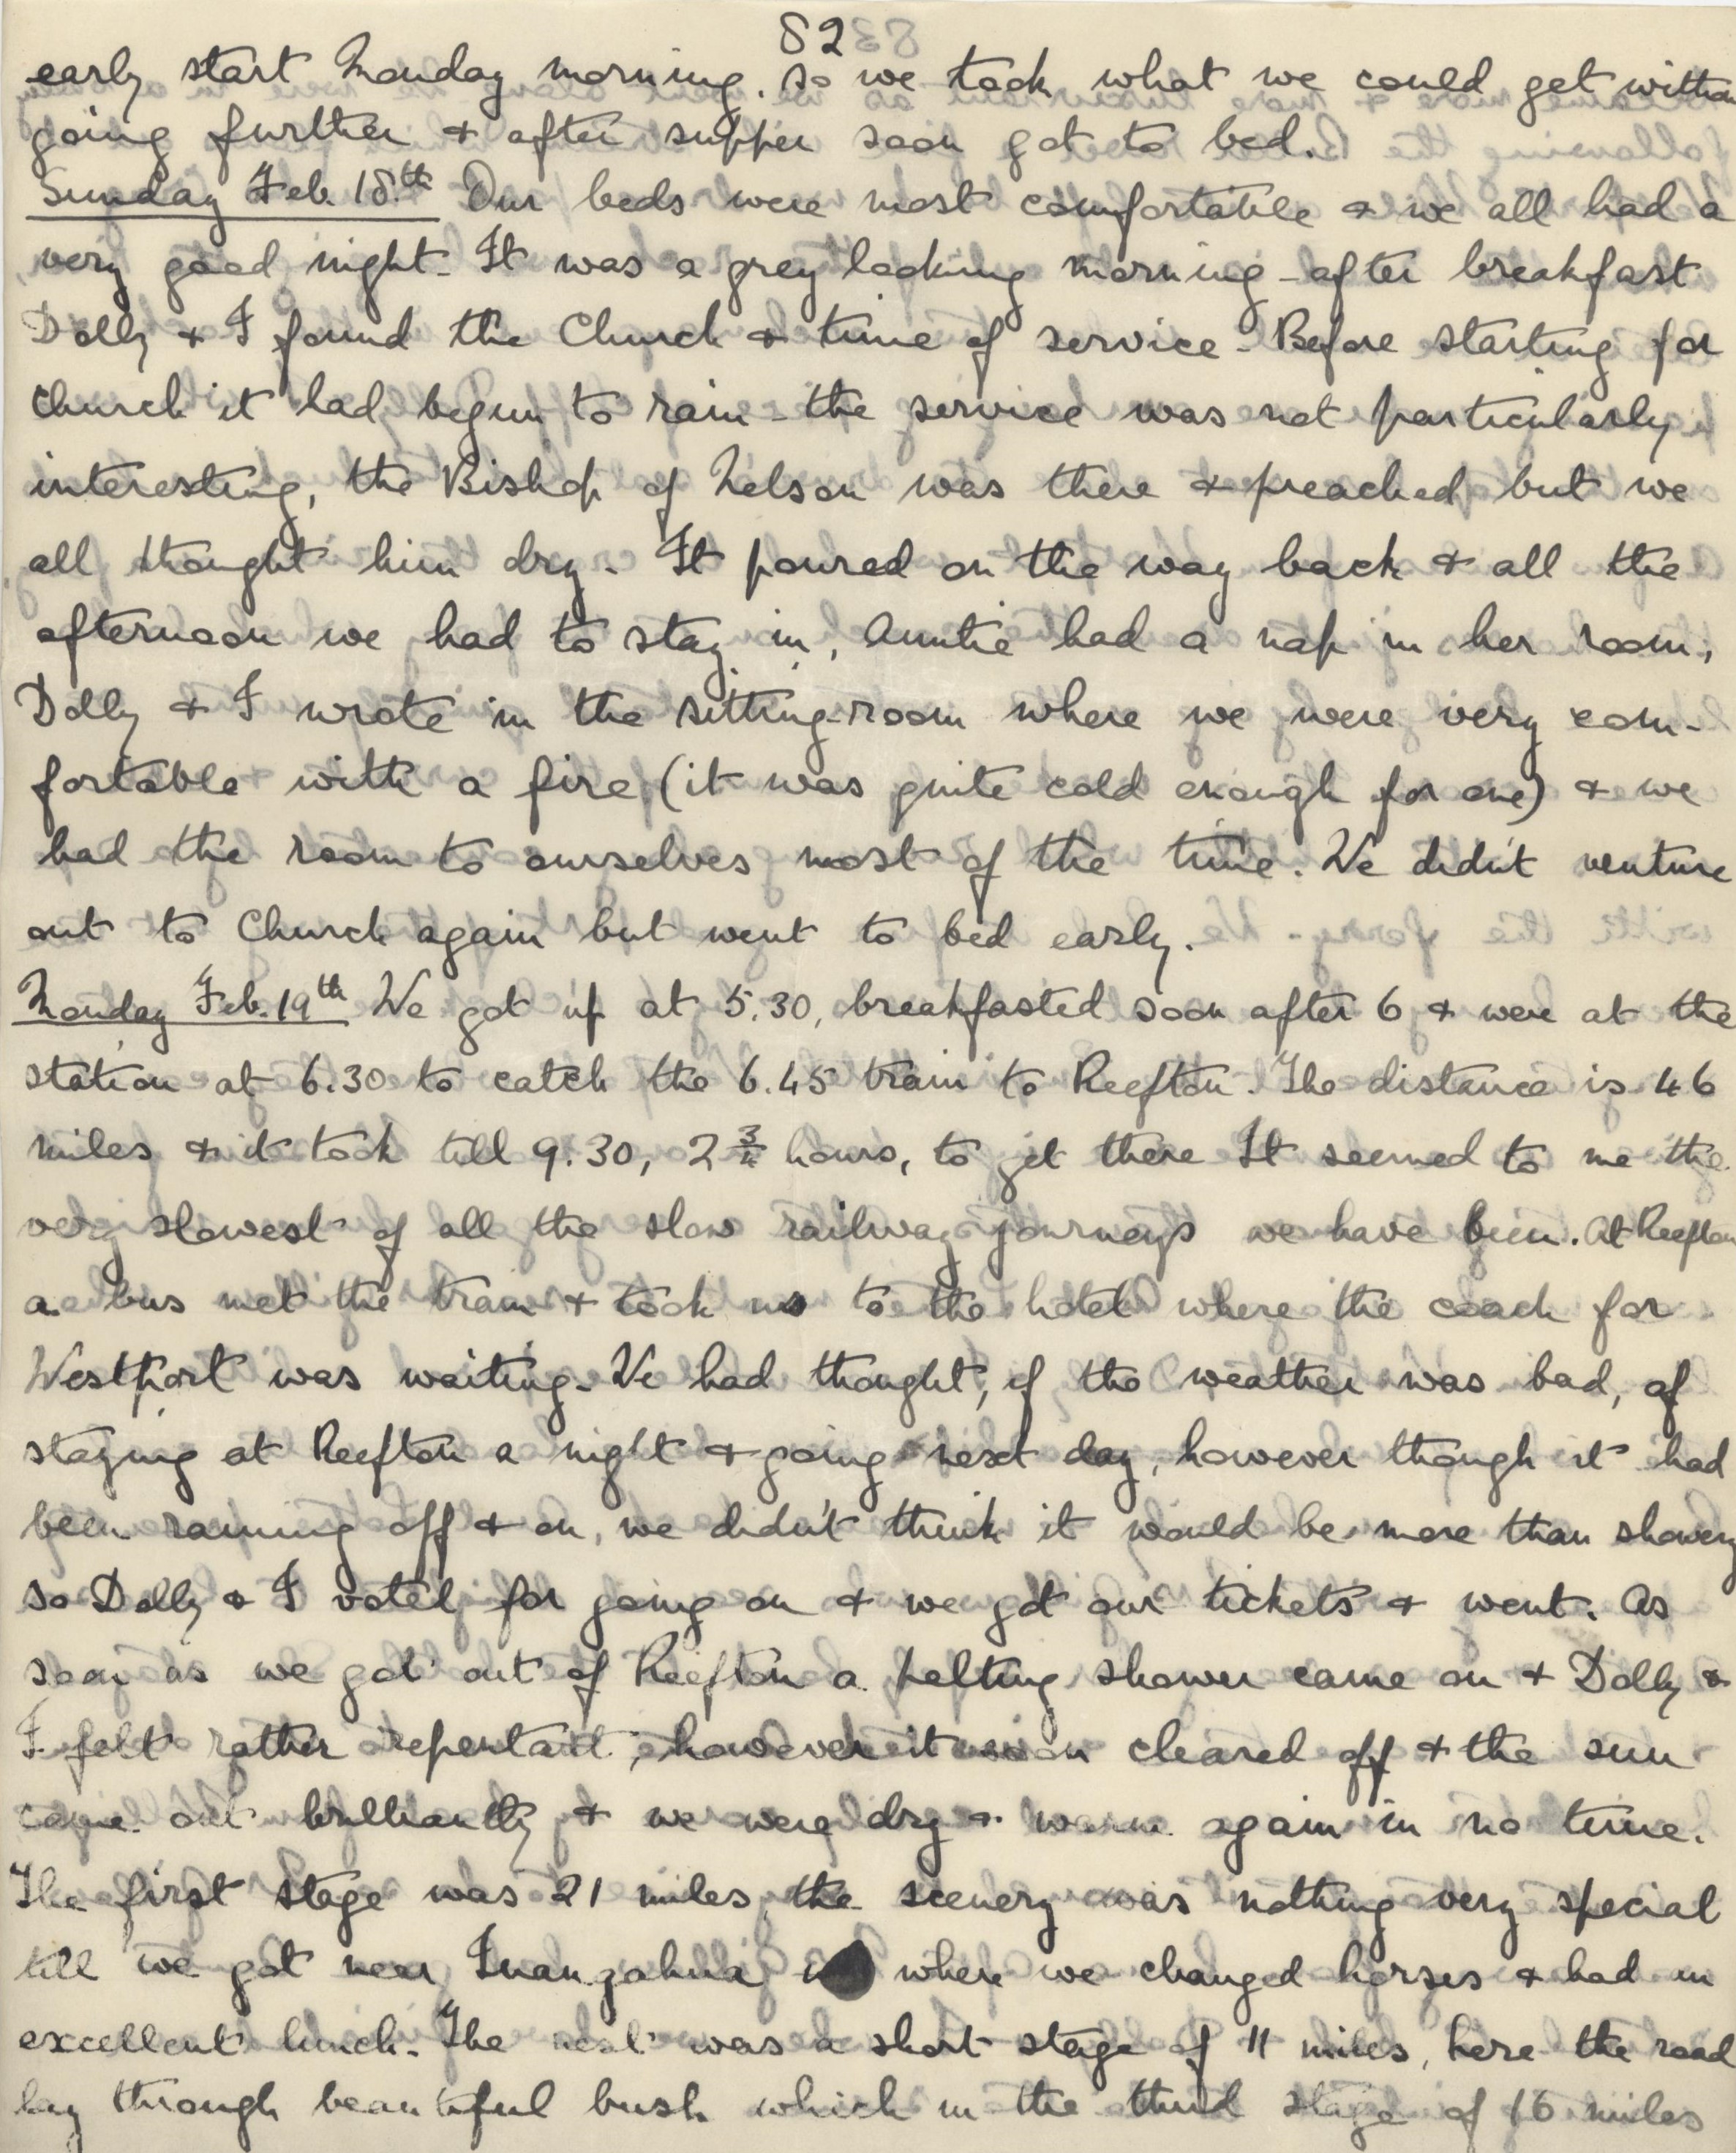 82
early start Monday morning. so we took what we could get withou
going further & after supper soon got to bed.
Sunday Feb. 18.th Our beds were most comfortable & we all had a
very good night. It was a grey looking morning - after breakfast
Dolly & I found the Church & time of service - Before starting for
Church it had begun to rain - the service was not particularly
interesting, the Bishop of Nelson was there & preached but we
all thought him dry. It poured on the way back & all the
afternoon we had to stay in, Auntie had a nap in her room,
Dolly & I wrote in the sitting-room where we were very com-
fortable with a fire (it was quite cold enough for one) & we
had the room to ourselves most of the time. We didn't venture
out to Church again but went to bed early.
Monday Feb. 19th We got up at 5.30, breakfasted soon after 6 & were at the
station at 6.30 to catch the 6.45 train to Reefton. The distance is 46
miles & it took till 9.30, 2 3/4 hours, to get there It seemed to me the
very slowest of all the slow railway journeys we have been. At Reefton
a bus met the train & took us to the hotel where the coach for
Westport was waiting. We had thought, if the weather was bad, of
staying at Reefton a night & going next day, however though it had
been raining off & on, we didn't think it would be more than showery
so Dolly & I voted for going on & we got our tickets & went. As
soon as we got out of Reefton a pelting shower came on & Dolly &
I felt rather repentant, however it soon cleared off & the sun
came out brilliantly & we were dry & warm again in no time.
The first stage was 21 miles, the scenery was nothing very special
till we got near Inangahua where we changed horses & had an
excellent lunch. The next was a short stage of 11 miles, here the road
lay through beautiful bush which in the third stage of 16 miles